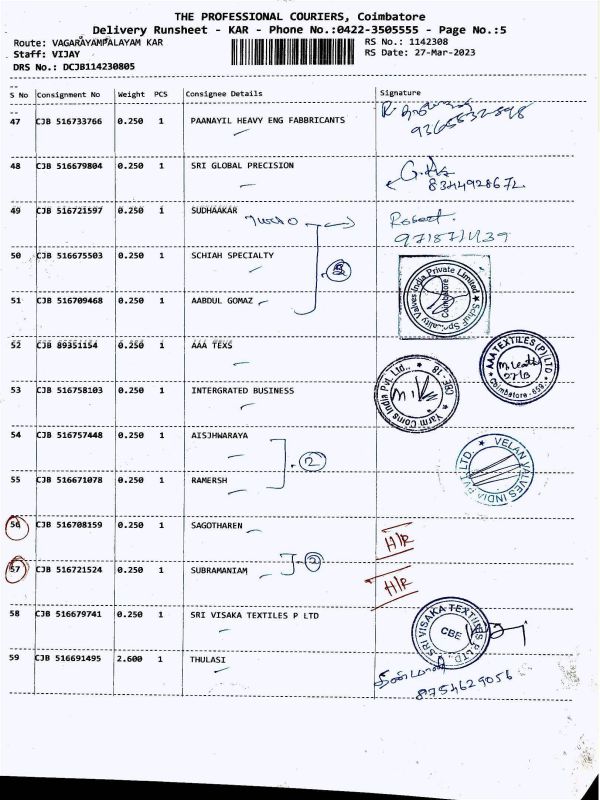 THE PROFESSIONAL COURIERS, Coimbatore
Delivery Runsheet - KAR - Phone No.:0422-3505555 - Page No.:5
Route: VAGARAYAMPALAYAM KAR RS No.: 1142308
Staff: VIJAY RS Date: 27-Mar-2023
DRS No.: DCJB114230805
S No Consignment No Weight PCS Consignee Details Signature
47 CJB 516733766 0.250 1 PAANAYIL HEAVY ENG FABBRICANTS
9365532898
48 CJB 516679804 0.250 1 SRI GLOBAL PRECISION
8344928672
49 CJB 516721597 0.250 1 SUDHAAKAR Robert.
50 CJB 516675503 0.250 1 SCHIAH SPECIALTY
Valves India Private Limited
Coimbatore
51 CJB 516709468 0.250 1 AABDUL GOMAZ
52 CJB 89351154 0.250 1 AAA TEXS
AAA TEXTILES (P) LTD
Coimbatore - 659
53 CJB 516758103 0.250 1 INTERGRATED BUSINESS
Yarm Coms India Pvt. Ltd., CBE - 18
54 CJB 516757448 0.250 1 AISJHWARAYA
2
VELAN VALVES INDIA PVT LTD.
55 CJB 516671078 0.250 1 RAMERSH
56 CJB 516708159 0.250 1 SAGOTHAREN H/R
57 CJB 516721524 0.250 1 SUBRAMANIAM 2 H/R
58 CJB 516679741 0.250 1 SRI VISAKA TEXTILES P LTD
SRI VISAKA TEXTILES P LTD.
CBE
59 CJB 516691495 2.600 1 THULASI
8754629056